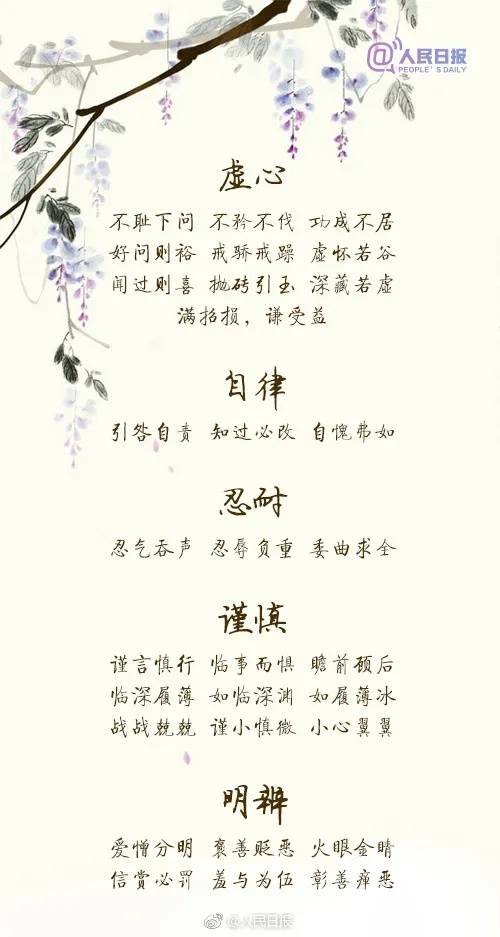 @人民日报
PEOPLE'S DAILY
虚心
不耻下问 不矜不伐 功成不居
好问则裕 戒骄戒躁 虚怀若谷
闻过则喜 抛砖引玉 深藏若虚
满招损，谦受益
自律
引咎自责 知过必改 自愧弗如
忍耐
忍气吞声 忍辱负重 委曲求全
谨慎
谨言慎行 临事而惧 瞻前顾后
临深履薄 如临深渊 如履薄冰
战战兢兢 谨小慎微 小心翼翼
明辨
爱憎分明 褒善贬恶 火眼金睛
信赏必罚 羞与为伍 彰善瘅恶
@人民日报